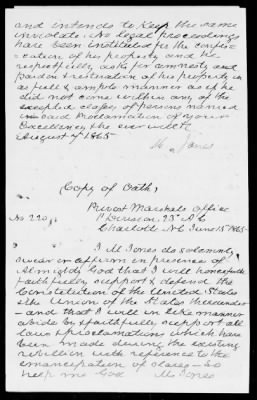 and intends to keep the same
inviolate. No legal proceedings
have been instituted for the confis-
cation of his property and he
respectfully asks for amnesty and
pardon & restoration of his property in
as full & ample manner as if he
did not come within any of the
excepted classes of persons named
in said Proclamation of your
Excellency &
August 7 1865
M. Jones
Copy of Oath,
Provost Marshals Office
Division, 23" A.C
No. 220
Charlotte NC June 15" 1865
I M Jones do solemnly
swear or affirm in presence of
Almighty God that I will henceforth
faithfully support & defend the
Constitution of the United States
& the Union of the States thereunder
- and that I will in like manner
abide by & faithfully support all
laws & proclamations which have
been made during the existing
rebellion with reference to the
emancipation of slaves - so
help me God M Jones